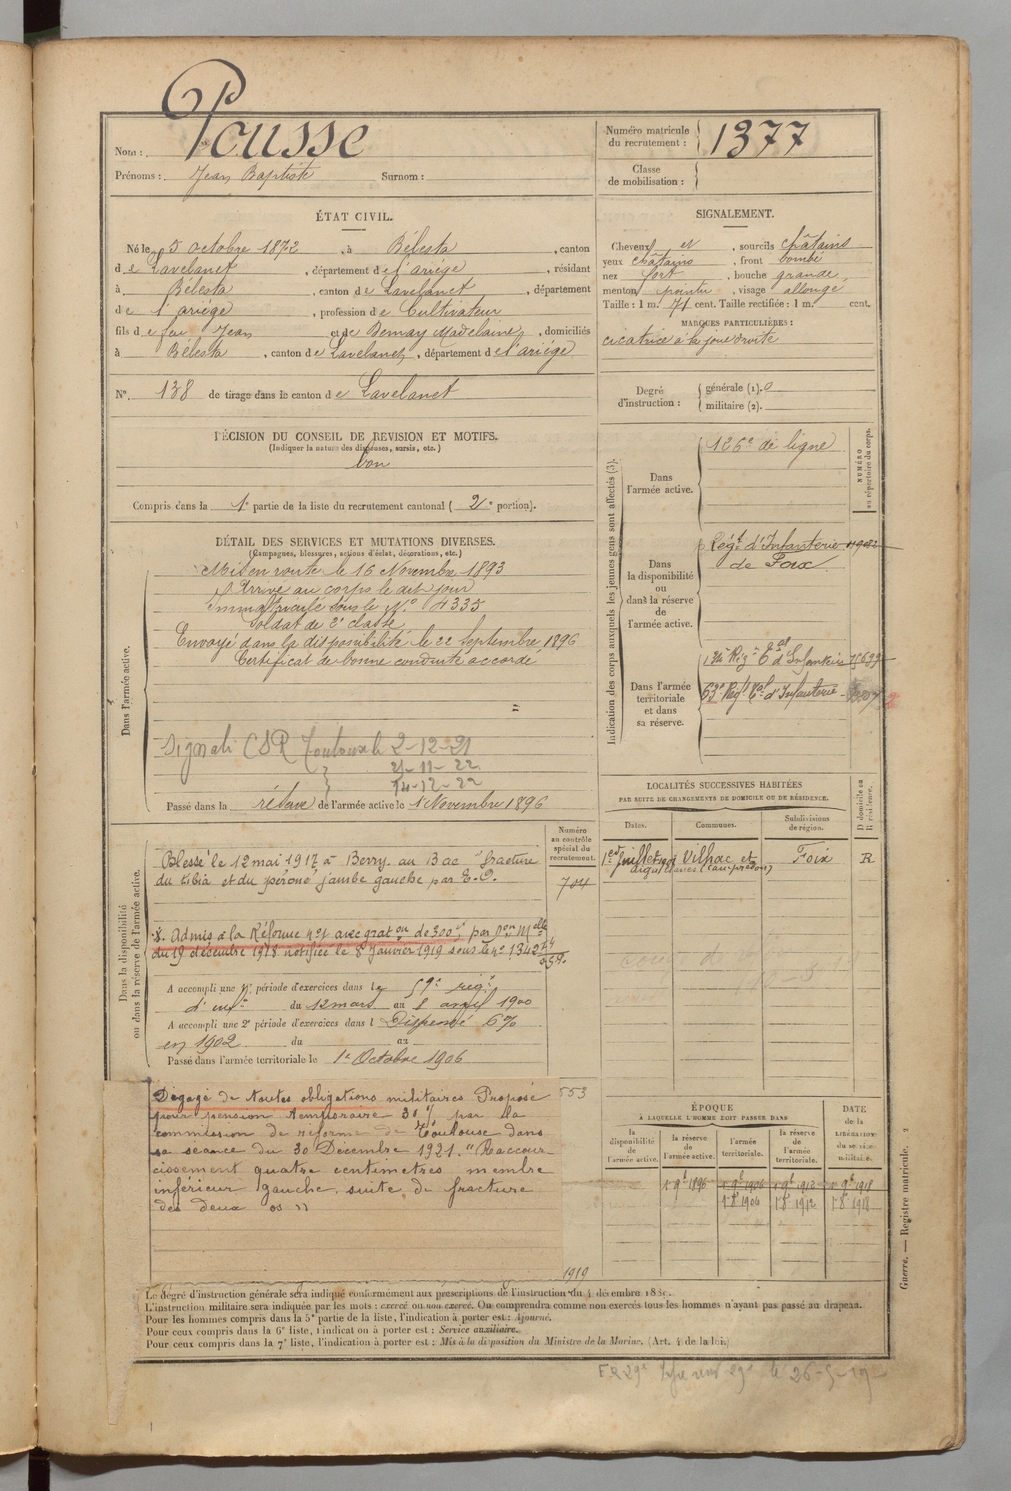 Nom : Pousse
Prénoms : Jean Baptiste Surnom :
Numéro matricule du recrutement : 1377
Classe de mobilisation :
ÉTAT CIVIL.
Né le 5 octobre 1872, à Bélesta, canton
de Lavelanet, département de l'ariége, résidant
à Bélesta, canton de Lavelanet, département
de l'ariége, profession de Cultivateur
fils de feu Jean et de Demay Madelaine, domiciliés
à Bélesta, canton de Lavelanet, département de l'ariége
N° 138 de tirage dans le canton de Lavelanet
SIGNALEMENT.
Cheveux et, sourcils châtains
yeux châtains, front bombé
nez fort, bouche grande,
menton pointu, visage allongé
Taille : 1 m. 71 cent. Taille rectifiée : 1 m. cent.
MARQUES PARTICULIÈRES :
cicatrice à la joue droite
Degré d'instruction :
générale (1). 0
militaire (2).
DÉCISION DU CONSEIL DE REVISION ET MOTIFS.
(Indiquer la nature des dispenses, sursis, etc.)
bon
Compris dans la 1e partie de la liste du recrutement cantonal ( 2e portion).
DÉTAIL DES SERVICES ET MUTATIONS DIVERSES.
(Campagnes, blessures, actions d'éclat, décorations, etc.)
Dans l'armée active.
Mis en route le 16 Novembre 1893
Arrivé au corps le dit jour
Immatriculé sous le N° 4335
Soldat de 2e classe
Envoyé dans la disponibilité le 22 Septembre 1896
Certificat de bonne conduite accordé
Signalé CSR Toulouse le 2-12-21
21-11-22
14-12-22
Passé dans la réserve de l'armée active le 1 Novembre 1896
Indication des corps auxquels les jeunes gens sont affectés (3).
NUMÉRO au répertoire du corps.
Dans l'armée active.
126e de ligne
Dans la disponibilité ou dans la réserve de l'armée active.
Régt d'Infanterie
de Foix
Dans l'armée territoriale et dans sa réserve.
Rég. d'Infanterie
63e Régt tal d'Infanterie
Dans la disponibilité ou dans la réserve de l'armée active.
Numéro au contrôle spécial du recrutement.
Blessé le 12 mai 1917 à Berry au Bac "fracture
du tibia et du péroné" jambe gauche par E.O.
704
Admis à la Réforme n°1 avec grat on de 300f par
du 19 décembre 1918 notifiée le 8 Janvier 1919 sous le n° 13427
A accompli une 1re période d'exercices dans le 59e rég.
d'inf. du 12 mars au 8 avril 1900
A accompli une 2e période d'exercices dans l Dispensé 6%
en 1902 du au
Passé dans l'armée territoriale le 1er Octobre 1906
Dégagé de toutes obligations militaires Proposé
pour pension temporaire 30% par la
commission de réforme de Toulouse dans
sa séance du 30 Décembre 1921. "Raccour-
cissement quatre centimètres membre
inférieur gauche, suite de fracture
des deux os"
553
1919
LOCALITÉS SUCCESSIVES HABITÉES
PAR SUITE DE CHANGEMENTS DE DOMICILE OU DE RÉSIDENCE.
Dates. Communes. Subdivisions de région. D domicile ou R résidence.
1er Juillet 1901 Vilhac et aiguillanes Foix R
ÉPOQUE
À LAQUELLE L'HOMME DOIT PASSER DANS
DATE de la LIBÉRATION du service militaire.
la disponibilité de l'armée active. la réserve de l'armée active. l'armée territoriale. la réserve de l'armée territoriale.
1 9e 1896 1 9e 1906 1 9e 1912 1 9e 1918
1 8e 1906 1 8e 1912 1 8e 1918
Guerre. — Registre matricule. 2
Le degré d'instruction générale sera indiqué conformément aux prescriptions de l'instruction du 4 décembre 1889.
L'instruction militaire sera indiquée par les mots : exercé ou non exercé. On comprendra comme non exercés tous les hommes n'ayant pas passé au drapeau.
Pour les hommes compris dans la 5e partie de la liste, l'indication à porter est : Ajourné.
Pour ceux compris dans la 6e liste, l'indication à porter est : Service auxiliaire.
Pour ceux compris dans la 7e liste, l'indication à porter est : Mis à la disposition du Ministre de la Marine. (Art. 4 de la loi.)